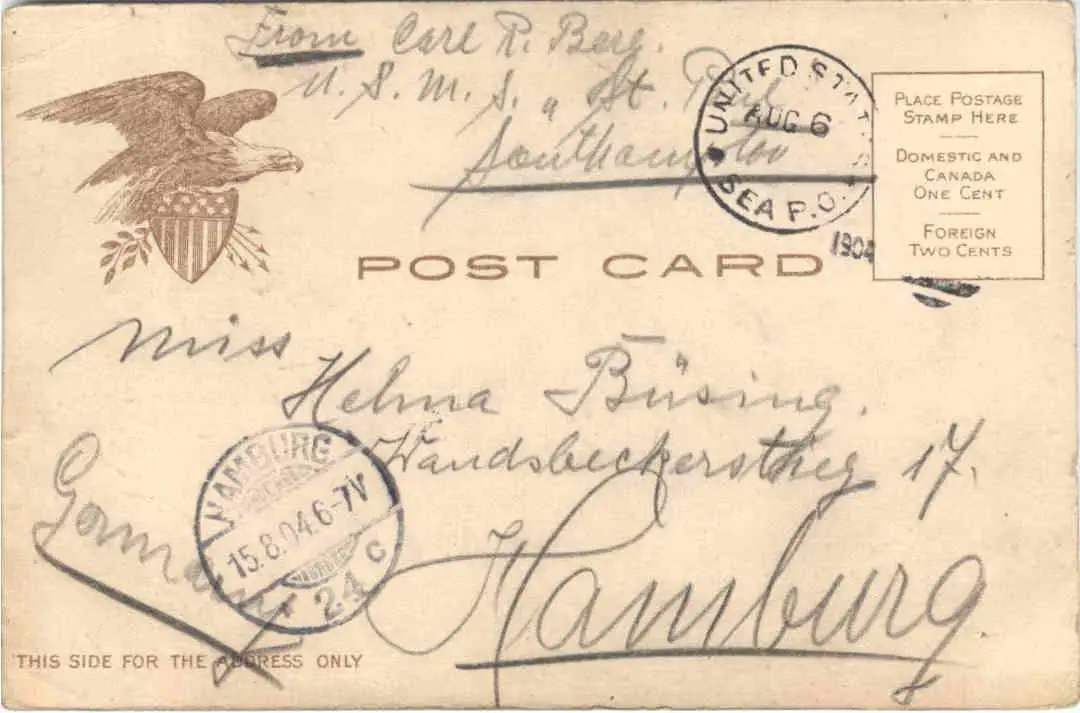 From Carl R. Berg.
U. S. M. S. „ St. Paul
Southampton
UNITED STATES
AUG 6
SEA P.O.
1904
PLACE POSTAGE
STAMP HERE
DOMESTIC AND
CANADA
ONE CENT
FOREIGN
TWO CENTS
POST CARD
Miss
Helma Büsing.
Wandsbeckerstieg 17.
Hamburg
Germany
HAMBURG
15.8.04.6-7V
* 24 c
THIS SIDE FOR THE ADDRESS ONLY